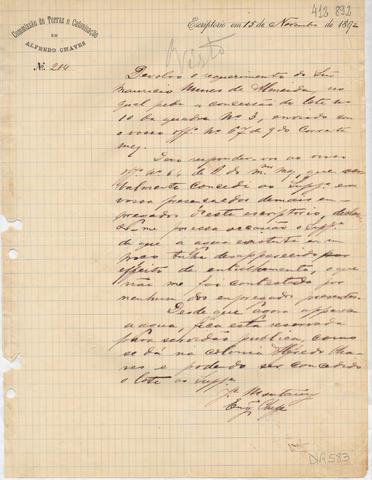 412 892
Commissão de Terras e Colonisação
DE
ALFREDO CHAVES
Escriptorio em 15 de Novembro de 1892
Visto
Nº 214
Devolvo o requerimento de
Mauricio Nunes de Almeida, no
qual pede a concessão do lote nº
10 da quadra Nº 3, enviado em
o vosso offº Nº 67 de 9 do corrente
mez.
responder-vos ao vosso
offº nº 6, de 8 do mº mez, que
balmente concedi ao Suppº em
vossa presença e dos demais em-
pregados d'este escriptorio,
me por essa occasião o Suppº
de que a agua existente
tinha desapparecido por
effeito de entulhamento, o que
não me foi contestado por
nenhum dos empregados presentes.
Desde que agora appareça
a agua, fica esta reservada
para servidão publica, como
se dá na colonia Alfredo Cha-
ves e podendo ser concedido
o lote ao Suppº
Engº Chefe
DVR583